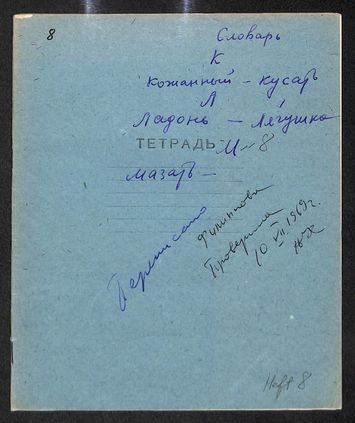 8
Словарь
К
кожанный – кусать
Л
Ладонь – Лягушка
ТЕТРАДЬ № 8
М
мазать –
Переписано
Филиппова
Проверила
10 VII 1969г.
Heft 8